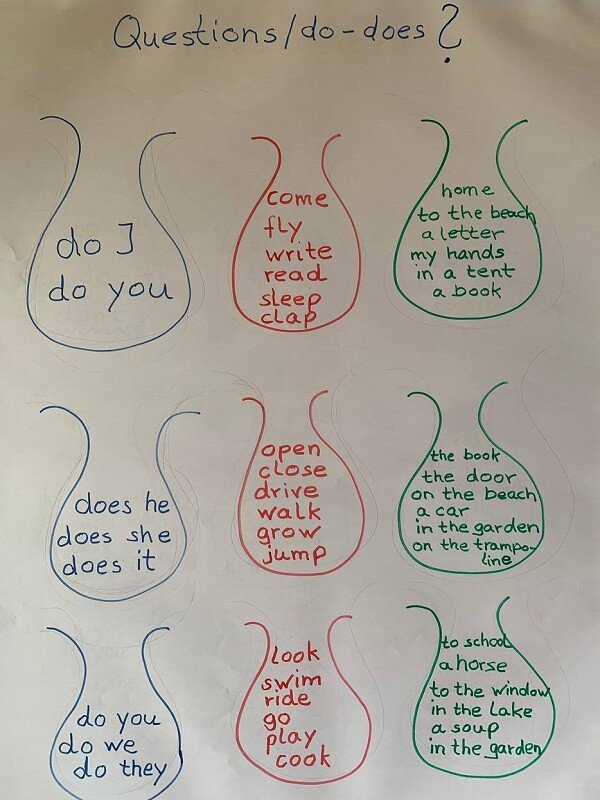 Questions/do-does?
do I
do you
come
fly
write
read
sleep
clap
home
to the beach
a letter
my hands
in a tent
a book
does he
does she
does it
open
close
drive
walk
grow
jump
the book
the door
on the beach
a car
in the garden
on the trampo-
line
do you
do we
do they
look
swim
ride
go
play
cook
to school
a horse
to the window
in the lake
a soup
in the garden